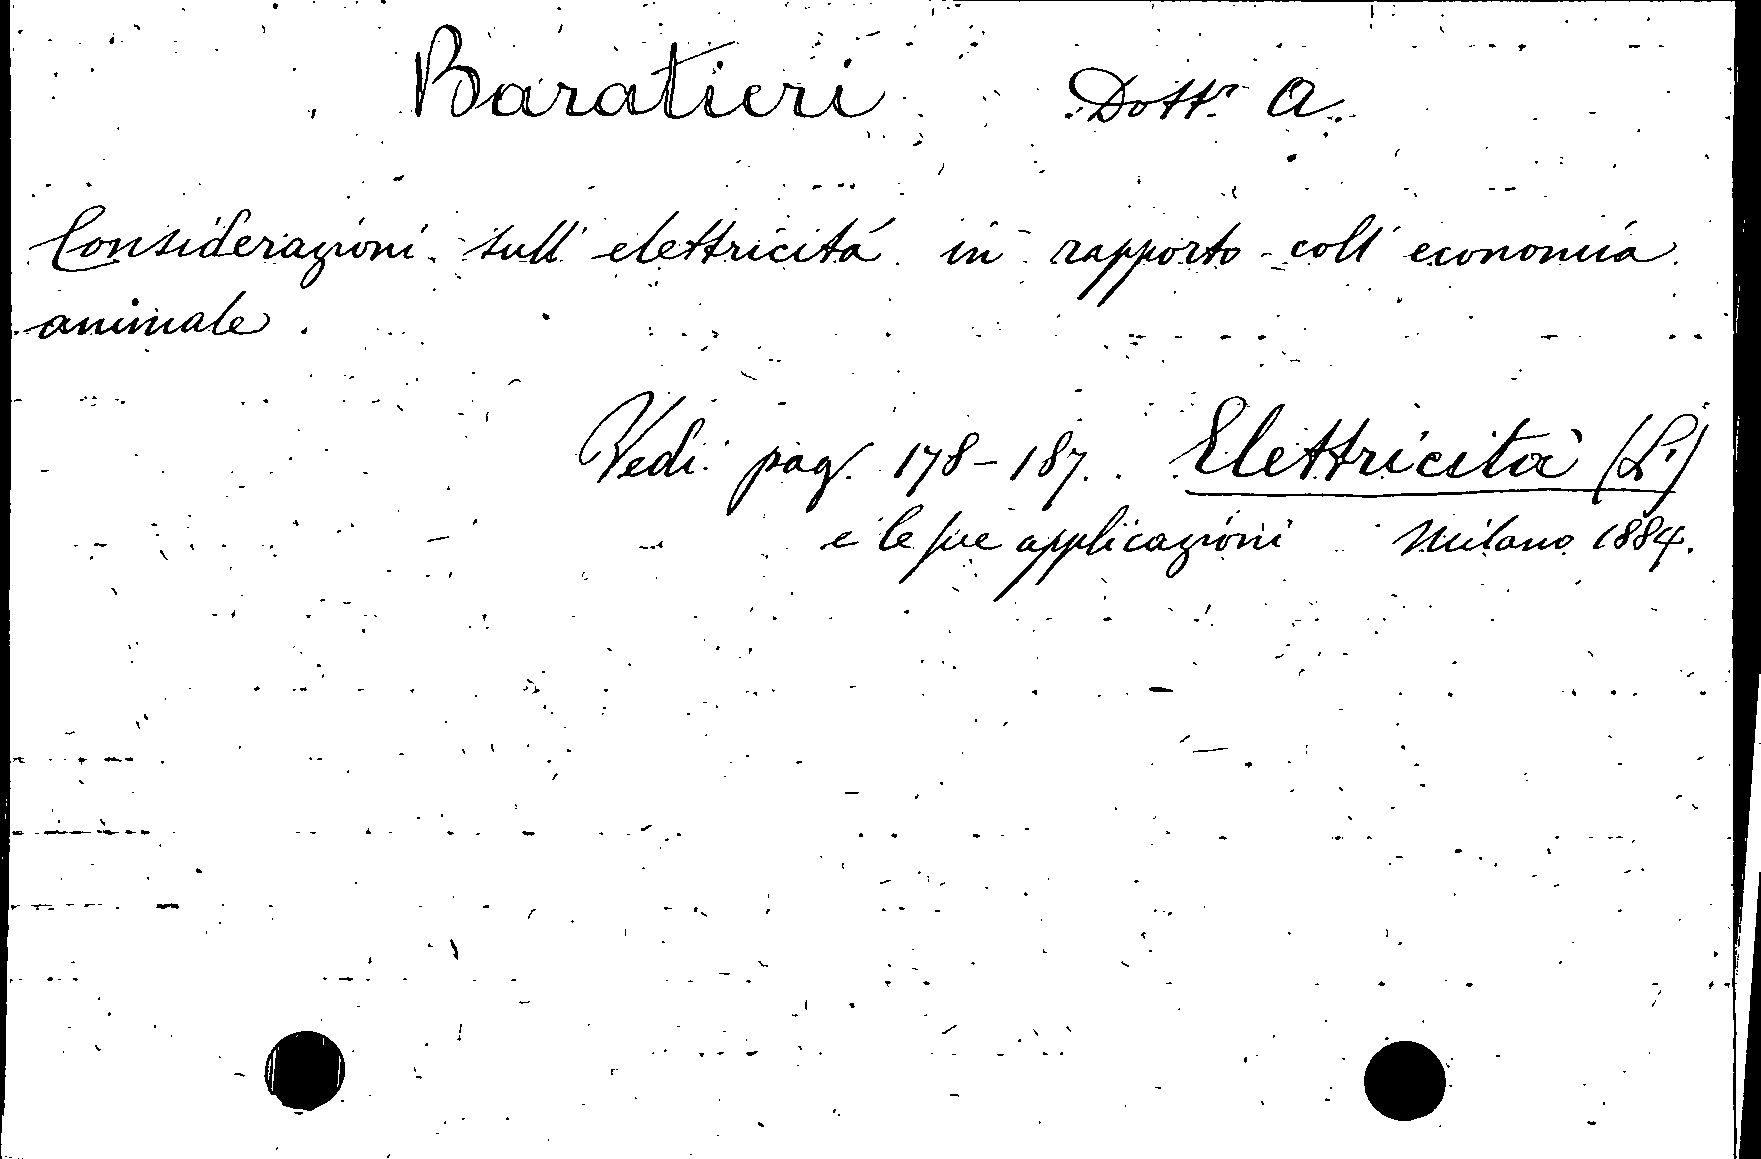 Baratieri Dott.r A.
Considerazioni sull' elettricità in rapporto coll' economia
animale.
Vedi pag. 178-187. Elettricità (L')
e le sue applicazioni Milano 1884.